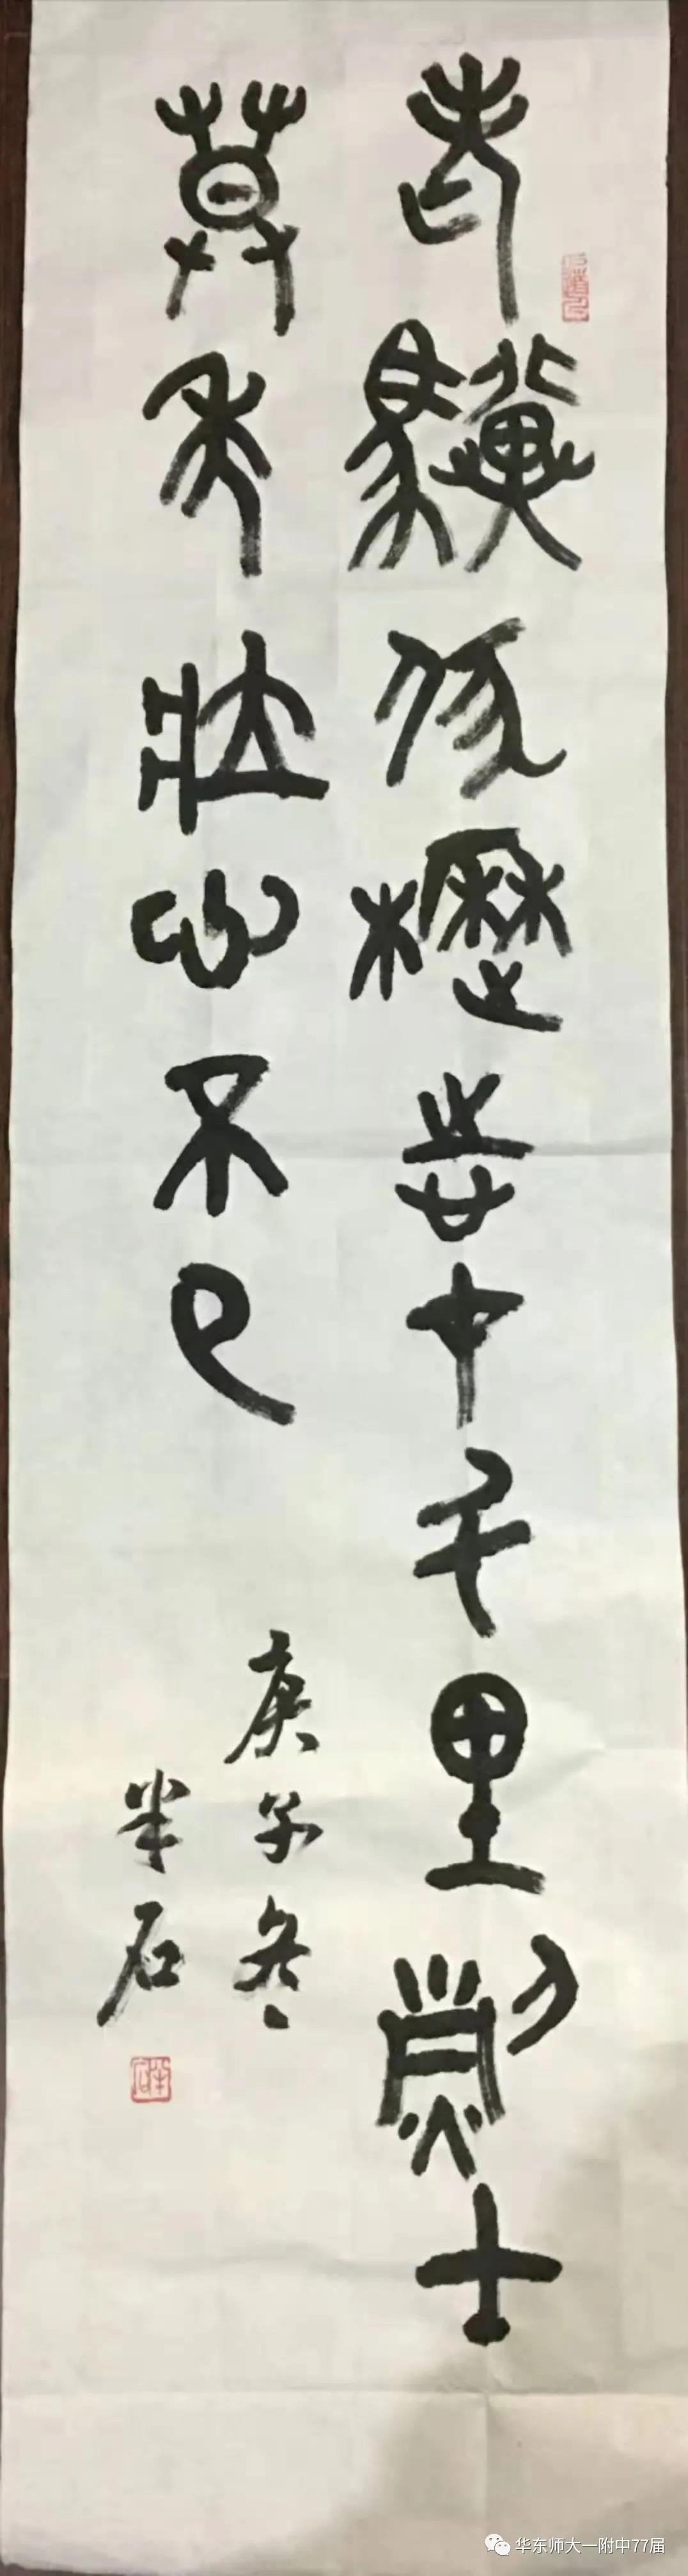 老驥伏櫪志在千里烈士
暮年壯心不已
庚子冬
半石
半石
华东师大一附中77届